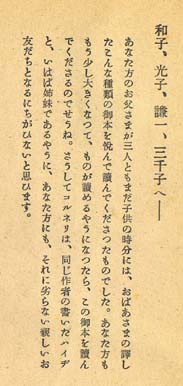 和子、光子、謙一、三千子へ――
あなた方のお父さまが三人ともまだ子供の時分には、おばあさまの譯し
たこんな種類の御本を悦んで讀んでくださつたものでした。あなた方も
もう少し大きくなつて、ものが讀めるやうになつたら、この御本を讀ん
でくださるのでせうね。さうしてコルネリは、同じ作者の書いたハイヂ
と、いはば姉妹であるやうに、あなた方にも、それに劣らない親しいお
友だちとなるにちがひないと思ひます。